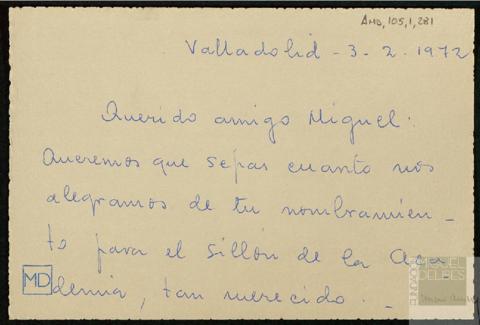 AMD, 105, 1, 281
Valladolid - 3 - 2 - 1972
Querido amigo Miguel:
Queremos que sepas cuanto nos
alegramos de tu nombramien -
to para el sillón de la Aca
demia, tan merecido. -
MD
FUNDACIÓN
MIGUEL
DELIBES